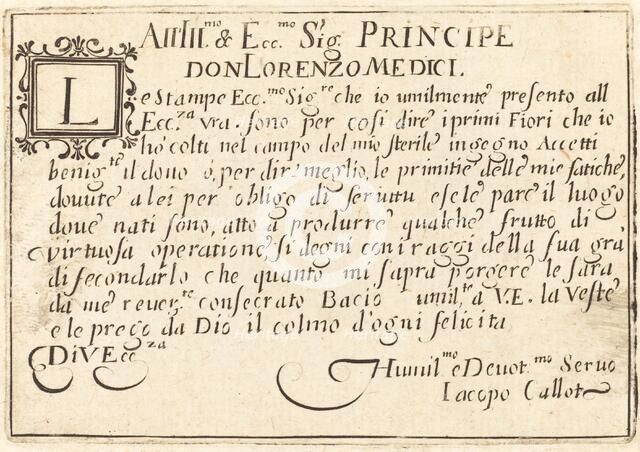 All'Ill.mo & Ecc.mo Sig. PRINCIPE
DON LORENZO MEDICI.
L
e Stampe Ecc.mo Sig.re che io umilmente presento all
Ecc.za vra. sono per cosi dire i primi Fiori che io
hò colti nel campo del mio sterile ingegno Accetti
benig.te il dono ò, per dir meglio, le primitie delle mie fatiche,
dovute a lei per obligo di servitu e se le pare il luogo
dove nati sono, atto a produrre qualche frutto di
virtuosa operatione, si degni con i raggi della sua gra
di secondarlo che quanto mi sapra porgere le sara
da me rever.te consecrato Bacio umil.te a V.E. la veste
e le prego da Dio il colmo d'ogni felicita
Di V Ecc.za
Humil.mo e Devot.mo Servo
Iacopo Callot